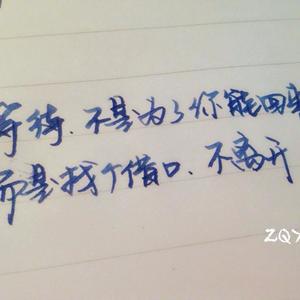 等待、不是为了你能回来
而是找个借口、不离开
ZQY